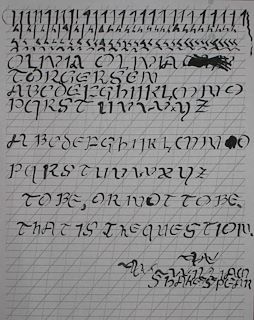 OLIVIA OLIVIA
TORGERSEN
ABCDEFGHIJKLMNO
PQRSTUVWXYZ
ABCDEFGHIJKLMNO
PQRSTUVWXYZ
TO BE, OR NOT TO BE.
THAT IS THE QUESTION.
WILLIAM
SHAKESPEAR